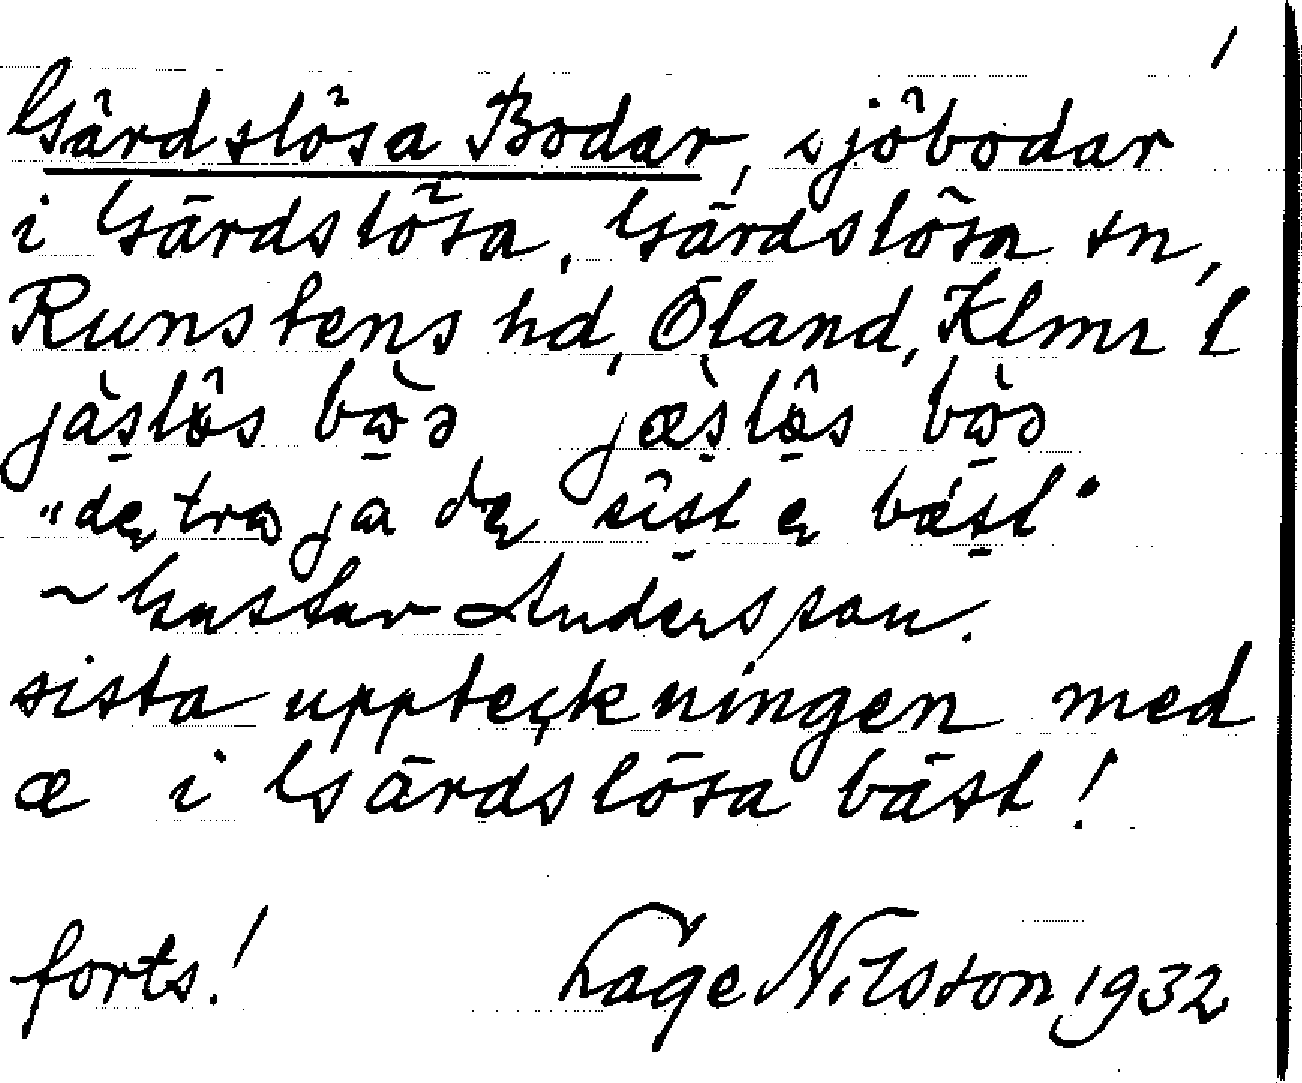 /
Gärdslösa Bodar, sjöbodar
i Gärdslösa, Gärdslösa sn,
Runstens hd, Öland, Klmr l
jàs̠lös bωə jæs̠lös bωə
"dę trω ja dę sist ę bæst"
~ Gustav Andersson.
sista uppteckningen med
æ i Gärdslösa bäst!
forts.! Lage Nilsson 1932